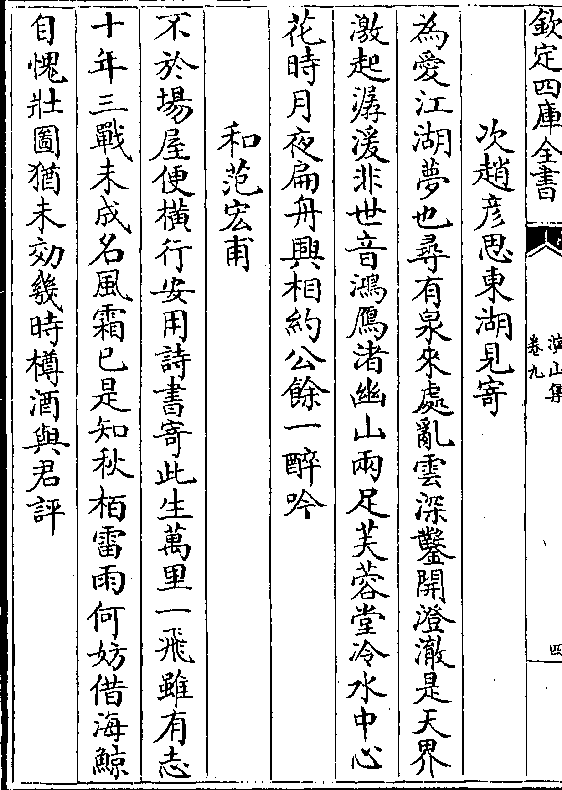 欽定四庫全書
演山集
卷九
四
次趙彦思東湖見寄
為愛江湖夢也尋有泉來處亂雲深鑿開澄澈是天界
激起潺湲非世音鴻鴈渚幽山兩足芙蓉堂冷水中心
花時月夜扁舟興相約公餘一醉吟
和范宏甫
不於場屋便橫行安用詩書寄此生萬里一飛雖有志
十年三戰未成名風霜已是知秋栢雷雨何妨借海鯨
自愧壯圖猶未効幾時樽酒與君評